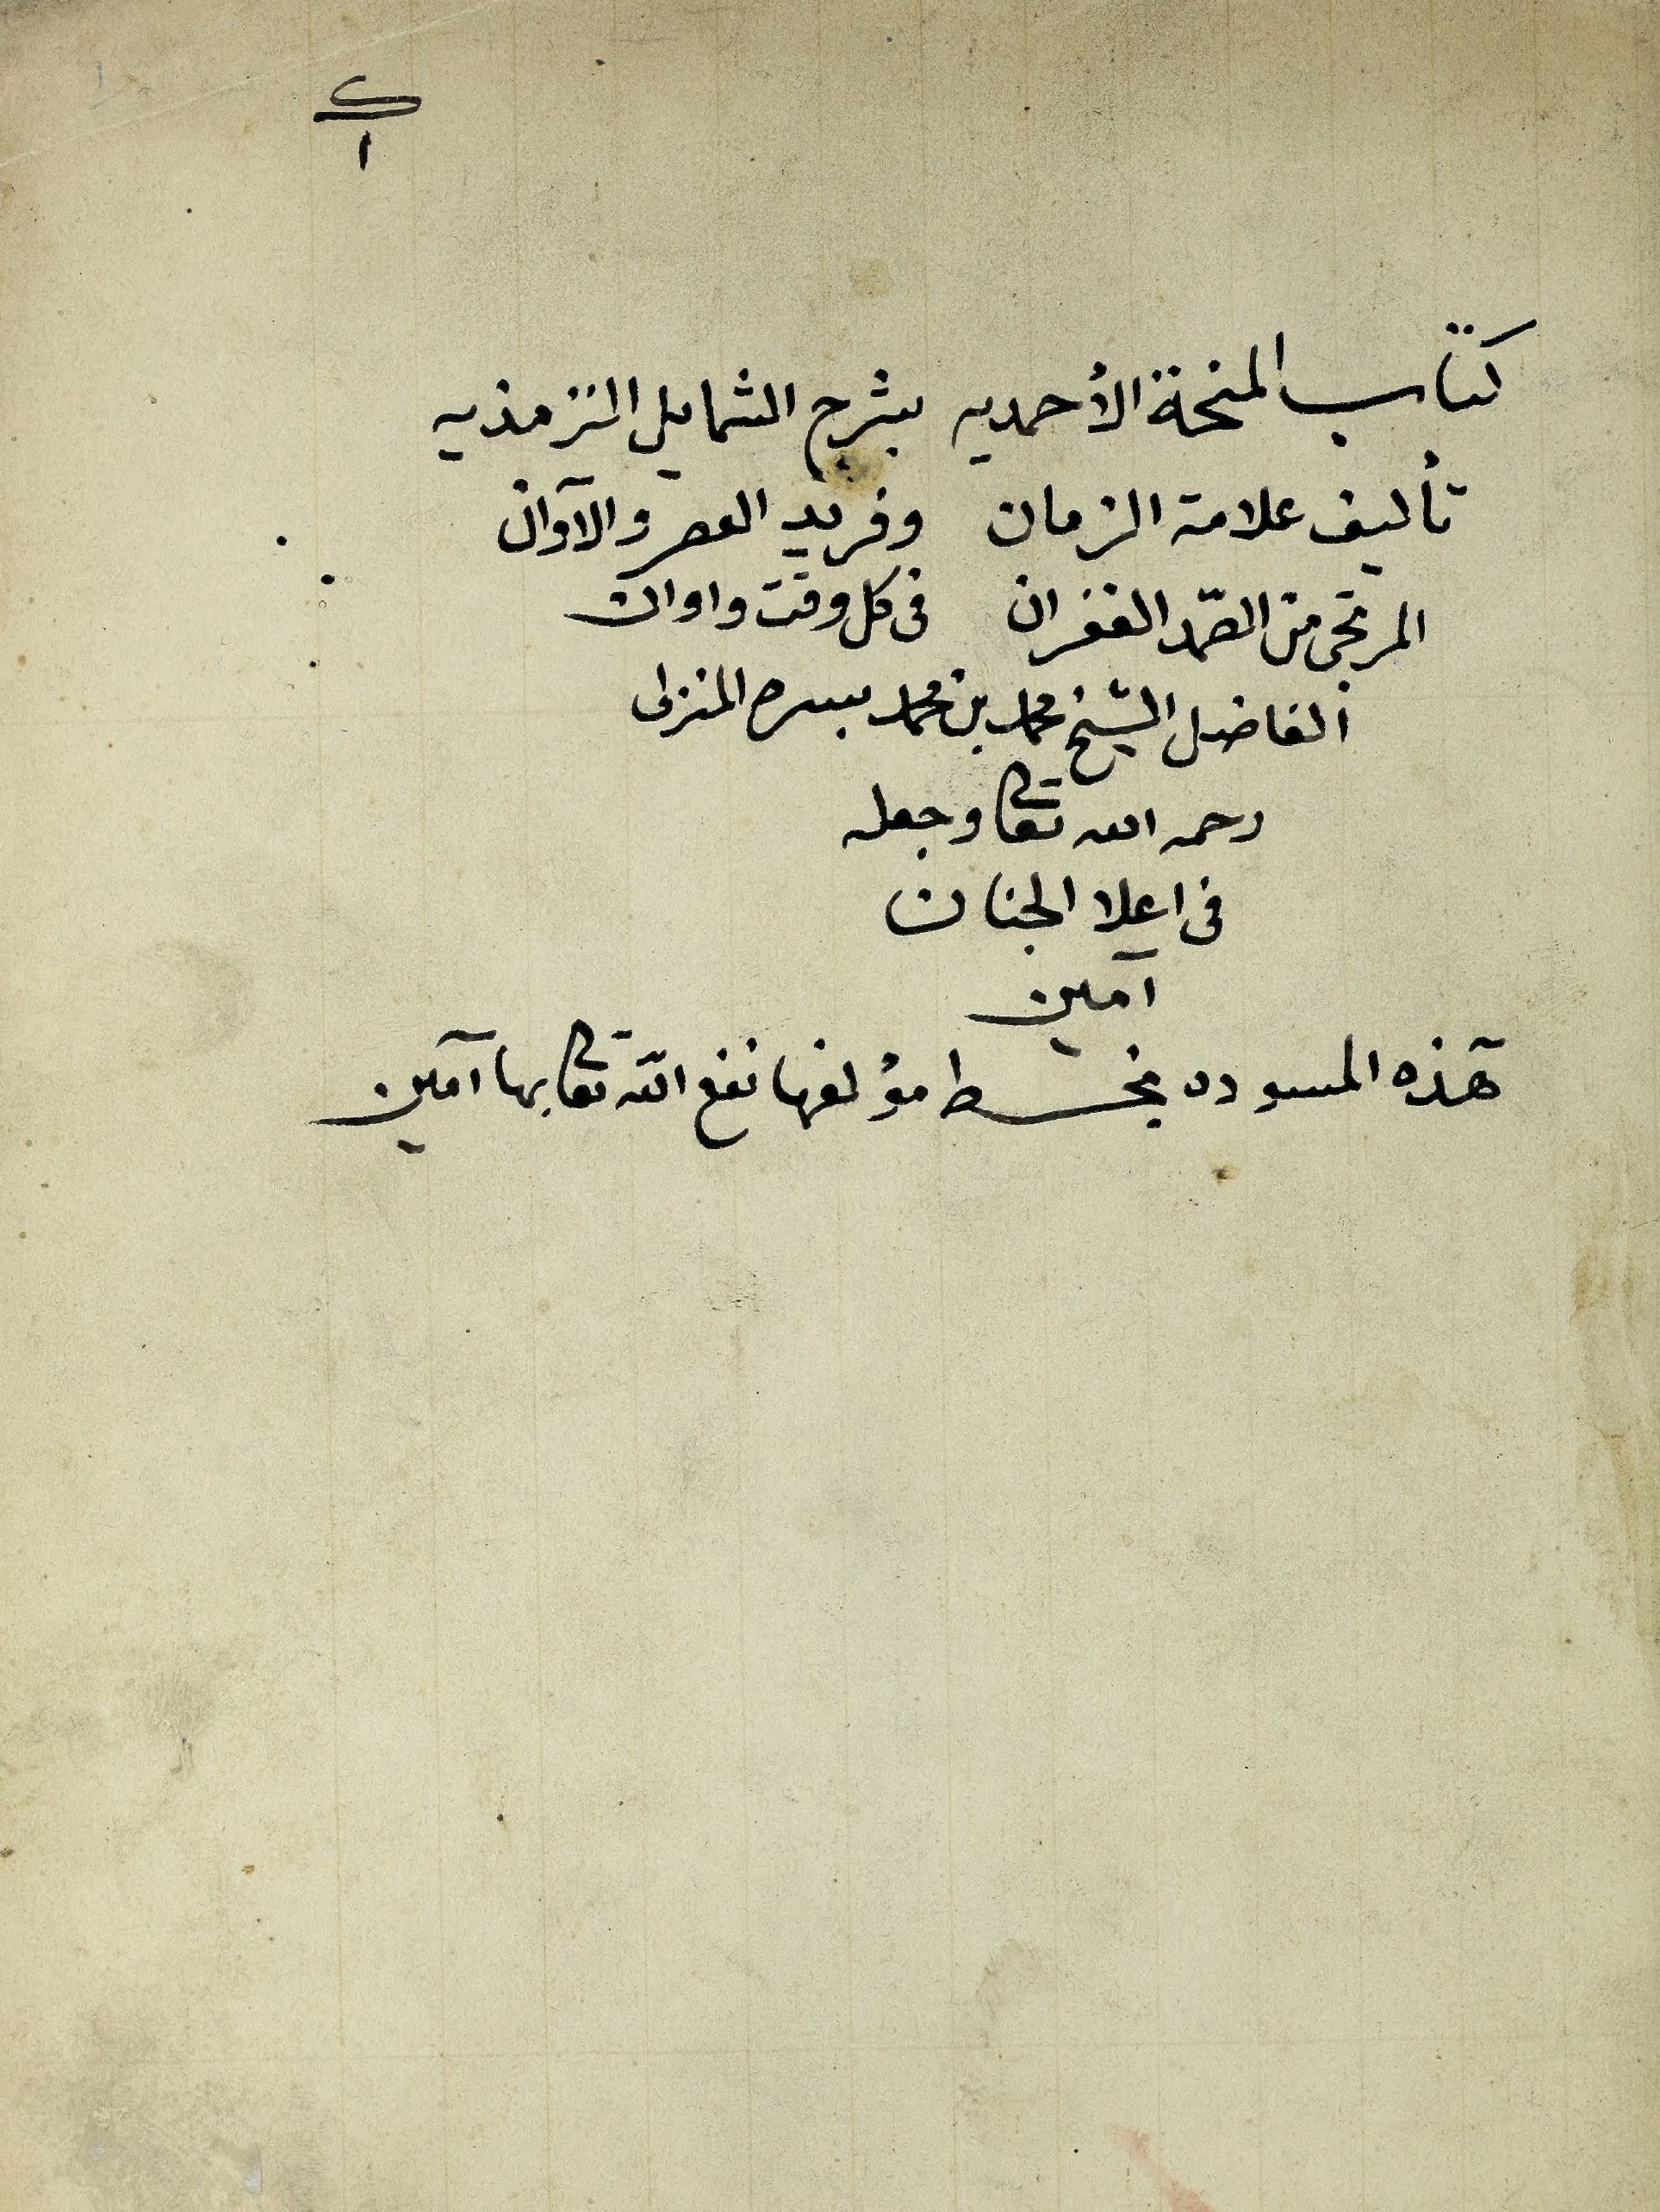 ١
كتاب المنحة الأحمديه بشرح الشمايل الترمذيه
تأليف علامة الزمان وفريد العصر والآوان
المرتجى من الصمد الغفران فى كل وقت واوان
الفاضل الشيخ محمد بن محمد المنزلى
رحمه الله تعالى وجعله
فى اعلا الجنان
آمين
هذه المسوده بخط مؤلفها نفع الله تعالى بها آمين